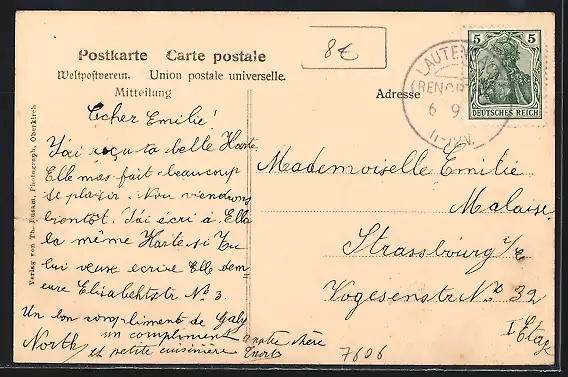 Postkarte Carte postale
Weltpostverein. Union postale universelle.
Mitteilung
Adresse
8€
5 5
DEUTSCHES REICH
LAUTENBACH
(RENCHTAL)
6 9
11-12V.
Verlag von Th. Busam, Photograph, Oberkirch
Cher Emilie!
J'ai reçu ta belle Karte
Elle mas fait beaucoup
de plaisir. Nou viendrons
bientôt. J'ai écri à Ella
la même Karte si Tu
lui veuse ecrire Elle dem
eure Elisabehtstr No 3.
Un bon compliment de Gaby
un compliment a notre chère
North et petite cuisinière
Mademoiselle Emilie
Malaise
Strassbourg i/E
Vogesenstr No 32
I Etag
7606